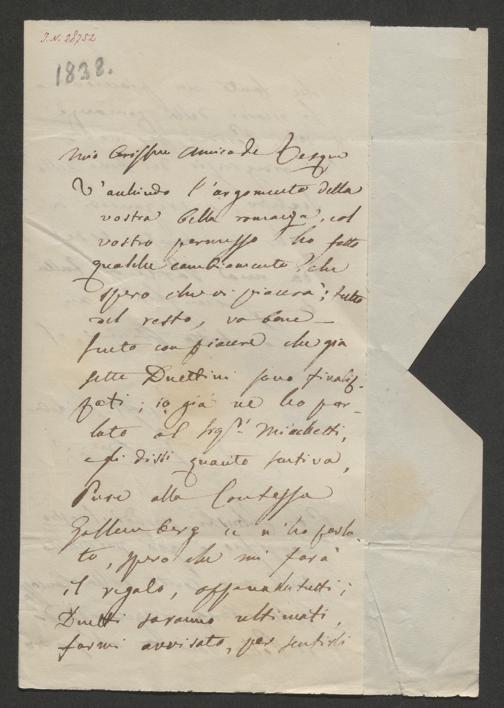 I.N. 28752
1838.
Mio Carissimo Amico de
V'acchiudo l'argomento della
vostra bella romanza, col
vostro permesso ho fatto
qualche cambiamento, che
spero che vi piacerà; tutto
nel resto, va bene —
Sento con piacere che già
sette Duettini sono finaliz-
zati; io già ne ho par-
lato al Sigr. Mechetti,
e gli dissi quanto sentiva,
Pure alla Contessa
Gallemberg ce n'ho parla-
to, spero che mi farà
il regalo, appena tutti i
Duetti saranno ultimati,
farmi avvisato, per sentirli